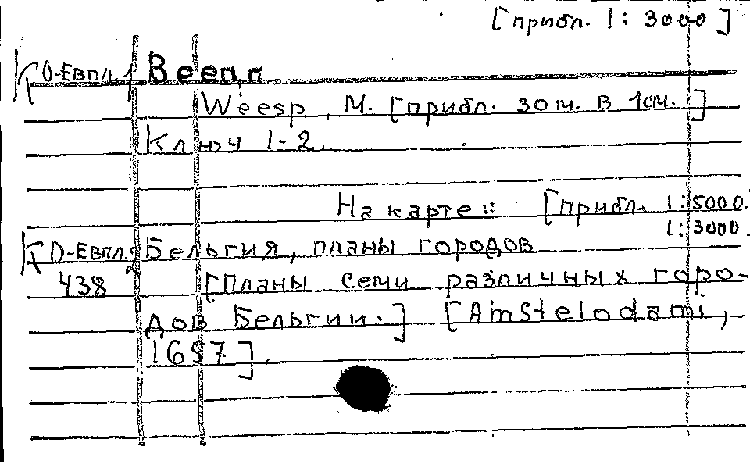 [прибл. 1:3000]
К О-Евпл. Веесп
Weesp, М. [прибл. 30 м. в 1см.]
Ключ 1-2.
На карте: [прибл. 1:5000.
1:3000.
К О-Евпл. Бельгия, планы городов
438 [Планы семи различных горо-
дов Бельгии.] [Amstelodami,
1657].